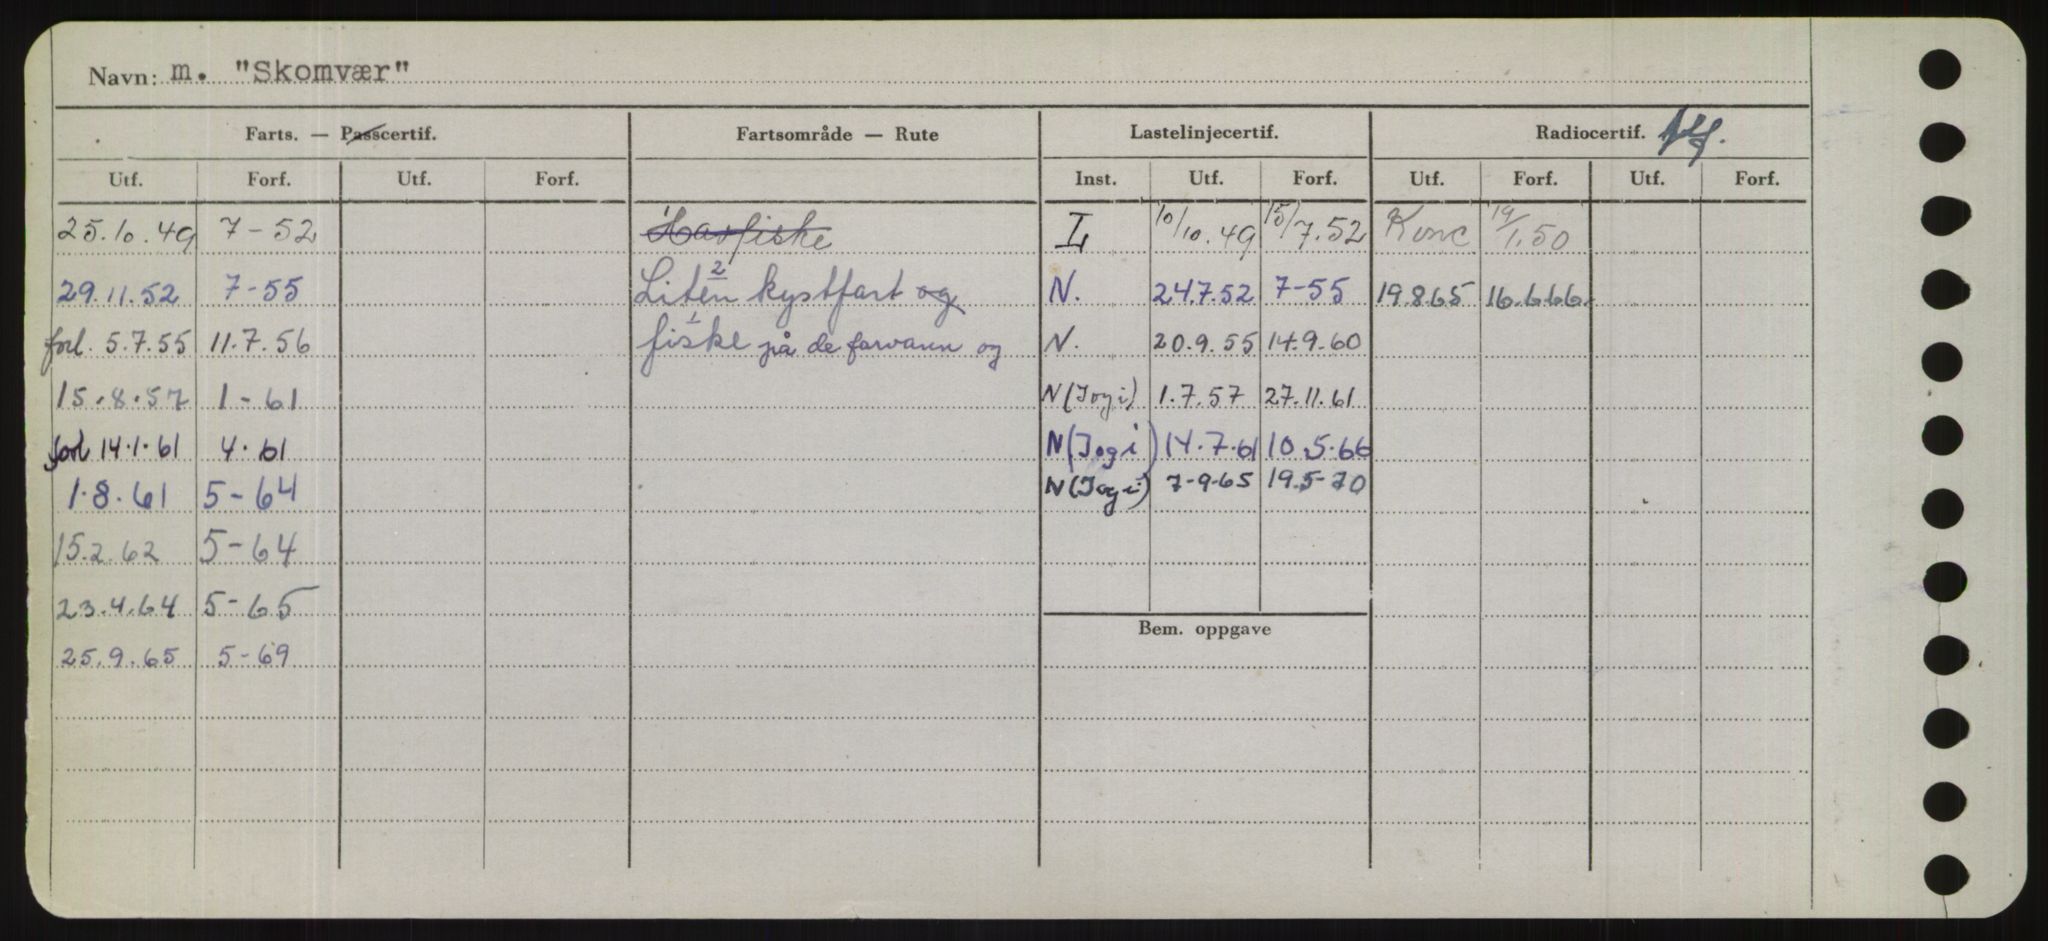 Navn: m. "Skomvær"
Farts. — Passcertif. Fartsområde — Rute Lastelinjecertif. Radiocertif.
Utf. Forf. Utf. Forf. Inst. Utf. Forf. Utf. Forf. Utf. Forf.
25.10.49 7-52 Havfiske L 10/10.49 15/7.52 Konc 19/1.50
29.11.52 7-55 Liten 2 kystfart og N. 24.7.52 7-55 19.8.65 16.6.66.
forl. 5.7.55 11.7.56 1 fiske på de farvann og N. 20.9.55 14.9.60
15.8.57 1-61 N(I og i) 1.7.57 27.11.61
forl 14.1.61 4.61 N(I og i) 14.7.61 10.5.66
1.8.61 5-64 N(I og i) 7-9-65 19.5-70
15.2.62 5-64
23.4.64 5-65
Bem. oppgave
25.9.65 5-69